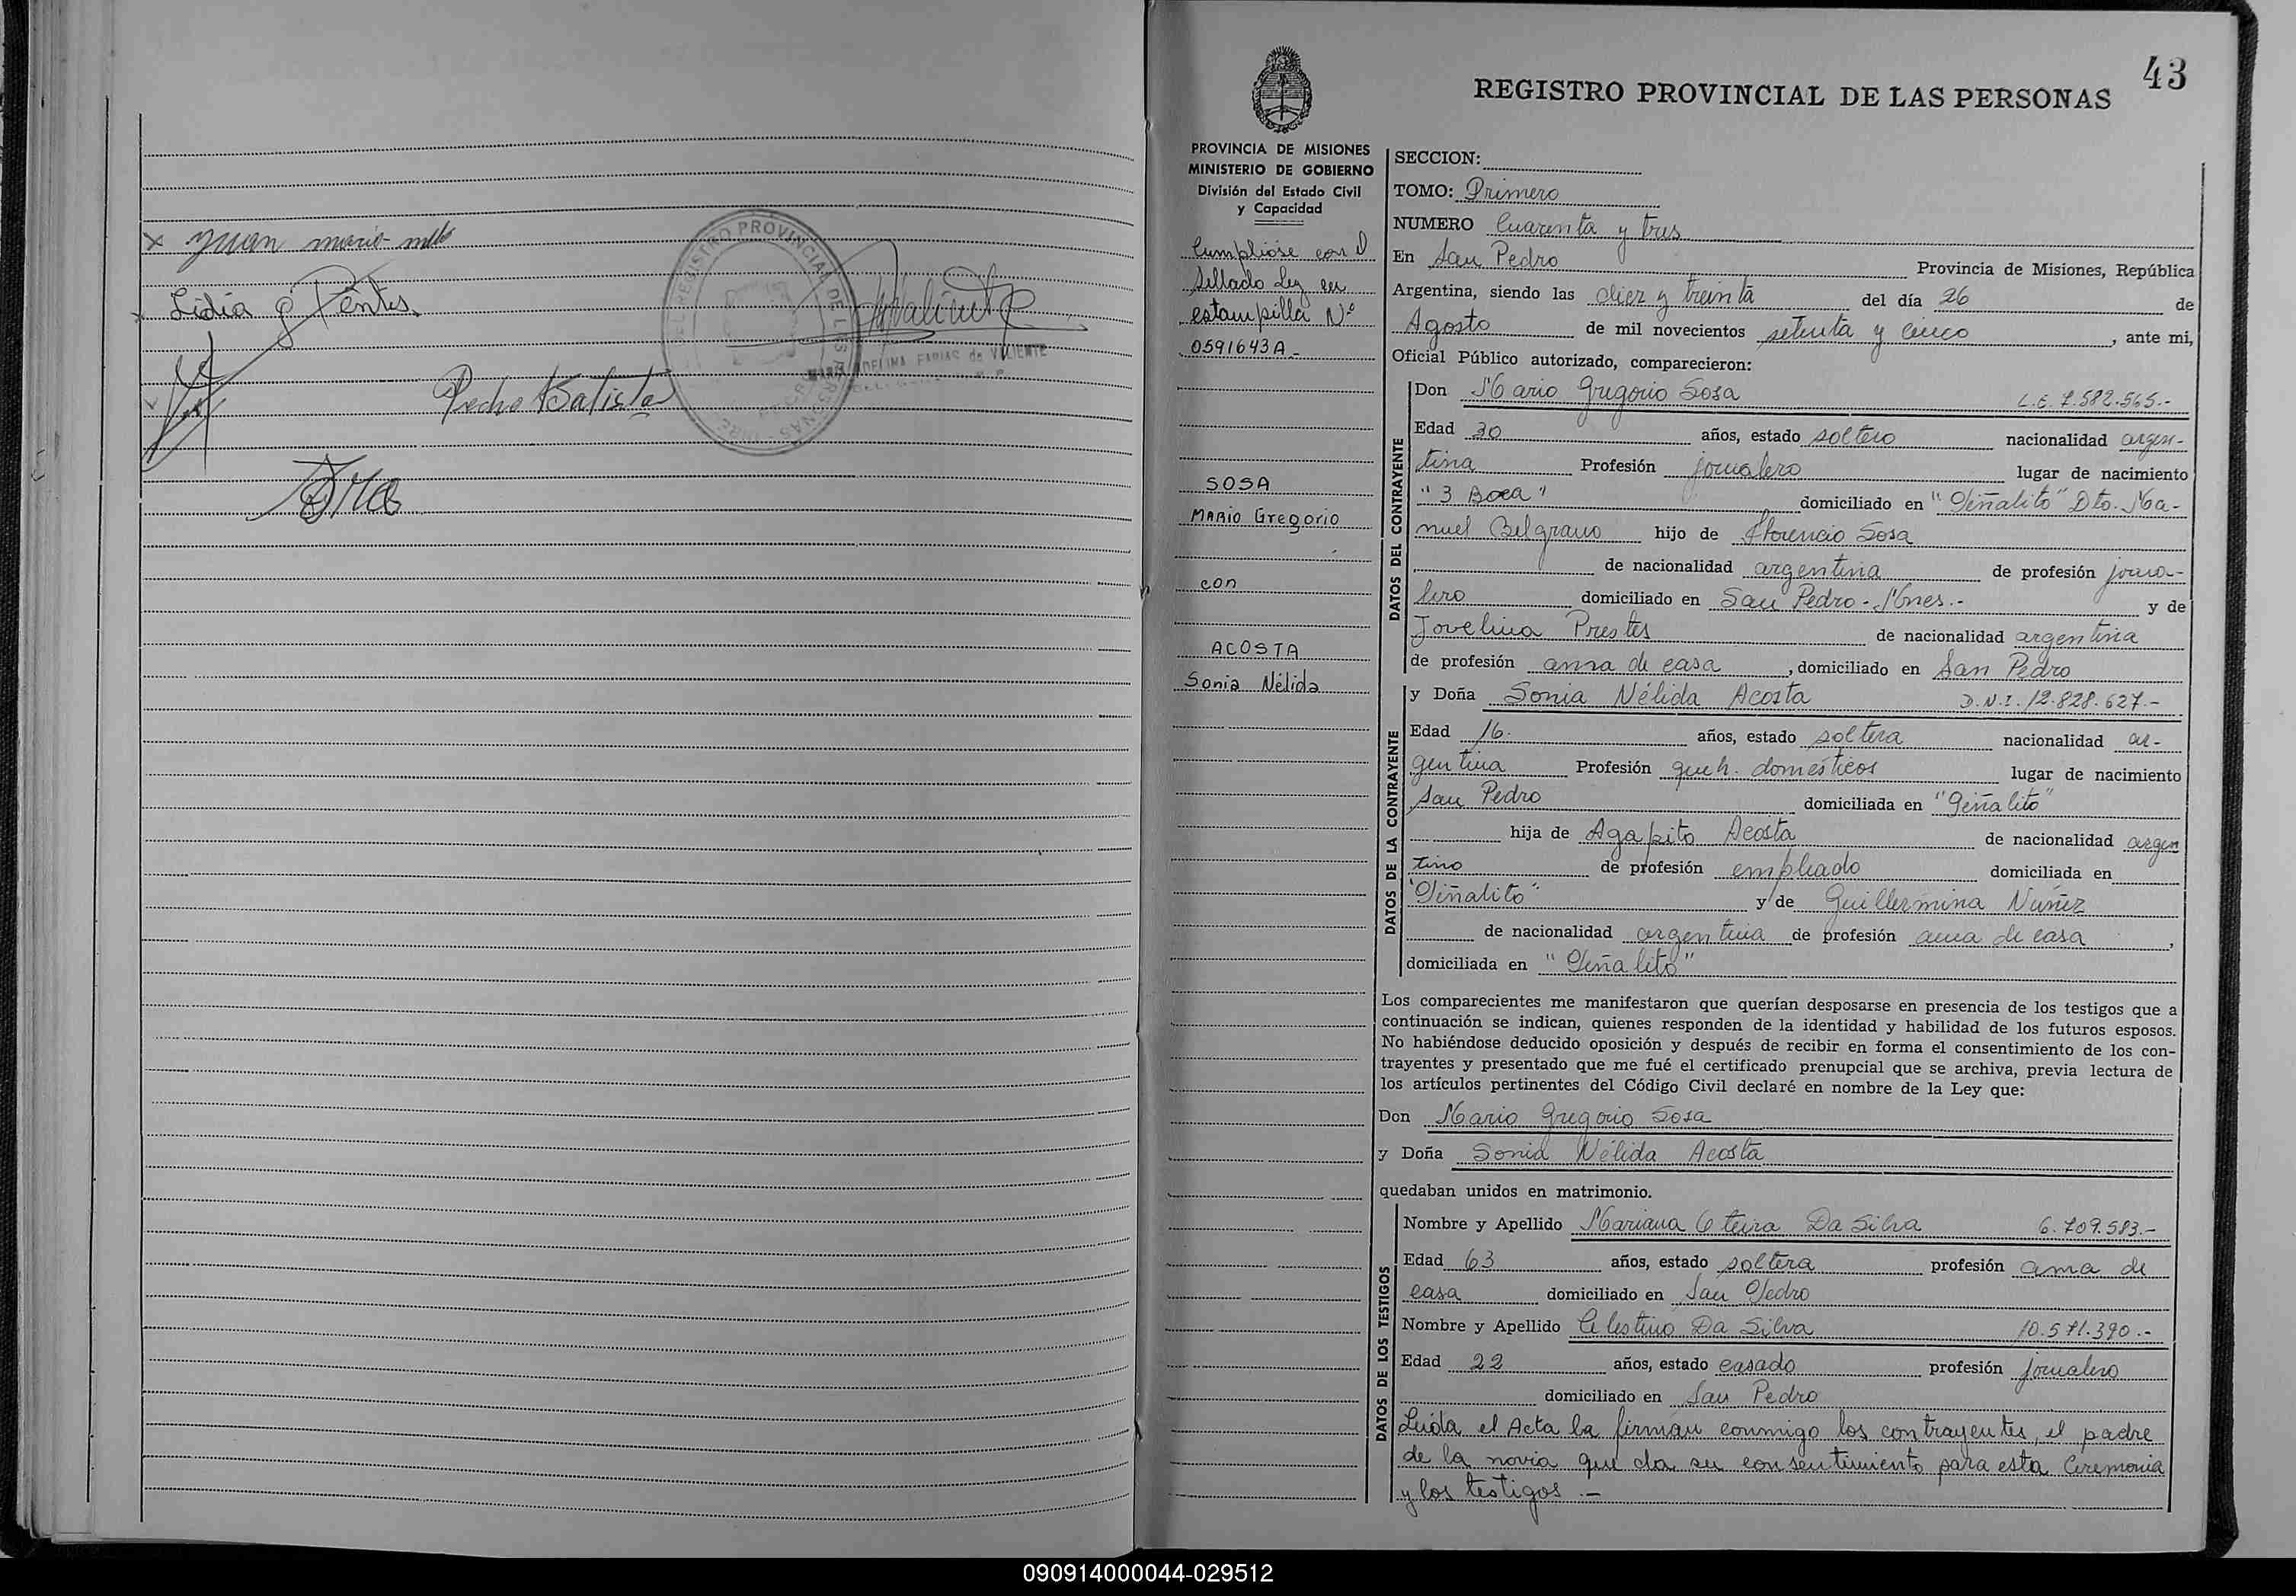 x Juan mario melo
Lidia G Pentes
REGISTRO PROVINCIAL DE LAS PERSONAS
FARIAS de VALIENTE
Pedro Batista
43
REGISTRO PROVINCIAL DE LAS PERSONAS
PROVINCIA DE MISIONES
MINISTERIO DE GOBIERNO
División del Estado Civil
y Capacidad
Cumplióse con el
sellado Ley en
estampilla Nº
0591643A.-
SOSA
MARIO Gregorio
con
ACOSTA
Sonia Nélida
SECCION:
TOMO: Primero
NUMERO Cuarenta y tres
En San Pedro Provincia de Misiones, República
Argentina, siendo las diez y treinta del día 26 de
Agosto de mil novecientos setenta y cinco, ante mi,
Oficial Público autorizado, comparecieron:
DATOS DEL CONTRAYENTE
Don Mario Gregorio Sosa L.E. 7.582.565.-
Edad 30 años, estado soltero nacionalidad argen-
tina Profesión jornalero lugar de nacimiento
"3 Boca" domiciliado en "Piñalito" Dto. Ma-
nuel Belgrano hijo de Florencio Sosa
de nacionalidad argentina de profesión jorna-
lero domiciliado en San Pedro - Mnes.- y de
Jovelina Prestes de nacionalidad argentina
de profesión ama de casa, domiciliado en San Pedro
DATOS DE LA CONTRAYENTE
y Doña Sonia Nélida Acosta D.N.I. 12.828.627.-
Edad 16. años, estado soltera nacionalidad ar-
gentina Profesión queh. domésticos lugar de nacimiento
San Pedro domiciliada en "Piñalito"
hija de Agapito Acosta de nacionalidad argen
tino de profesión empleado domiciliada en
"Piñalito" y de Guillermina Nuñez
de nacionalidad argentina de profesión ama de casa,
domiciliada en "Piñalito"
Los comparecientes me manifestaron que querían desposarse en presencia de los testigos que a
continuación se indican, quienes responden de la identidad y habilidad de los futuros esposos.
No habiéndose deducido oposición y después de recibir en forma el consentimiento de los con-
trayentes y presentado que me fué el certificado prenupcial que se archiva, previa lectura de
los artículos pertinentes del Código Civil declaré en nombre de la Ley que:
Don Mario Gregorio Sosa
y Doña Sonia Nélida Acosta
quedaban unidos en matrimonio.
DATOS DE LOS TESTIGOS
Nombre y Apellido Mariana Oteira Da Silva 6.709.583.-
Edad 63 años, estado soltera profesión ama de
casa domiciliado en San Pedro
Nombre y Apellido Celestino Da Silva 10.571.390.-
Edad 22 años, estado casado profesión jornalero
domiciliado en San Pedro
Leida el Acta la firman conmigo los contrayentes, el padre
de la novia que da su consentimiento para esta Ceremonia
y los testigos.-
090914000044-029512